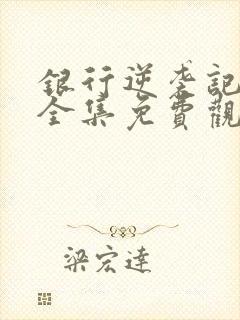 銀行逆袭記
全集免費觀
梁宏達